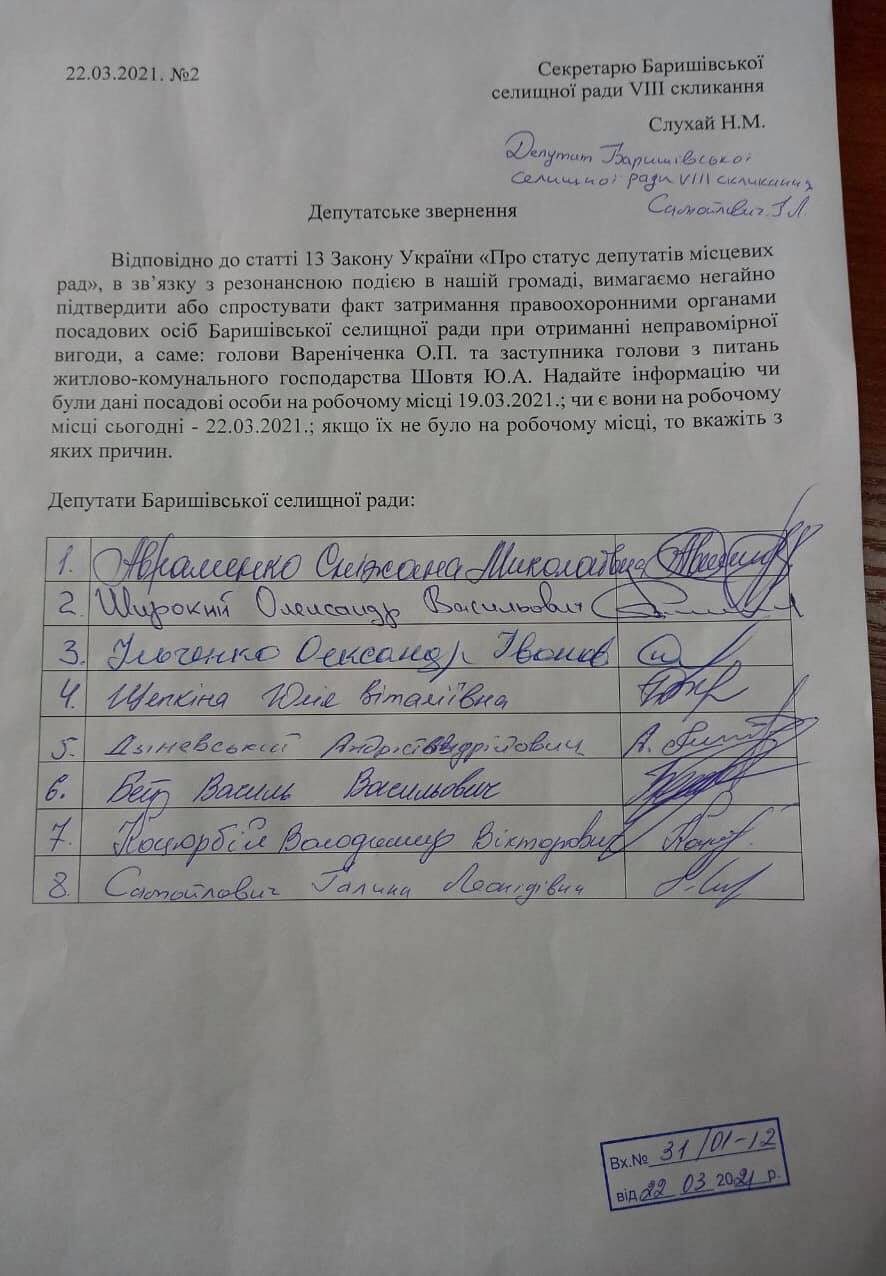 22.03.2021. №2
Секретарю Баришівської
селищної ради VIII скликання
Слухай Н.М.
Депутат Баришівської
селищної ради VIII скликання
Самойлович Г.Л.
Депутатське звернення
Відповідно до статті 13 Закону України «Про статус депутатів місцевих
рад», в зв’язку з резонансною подією в нашій громаді, вимагаємо негайно
підтвердити або спростувати факт затримання правоохоронними органами
посадових осіб Баришівської селищної ради при отриманні неправомірної
вигоди, а саме: голови Вареніченка О.П. та заступника голови з питань
житлово-комунального господарства Шовтя Ю.А. Надайте інформацію чи
були дані посадові особи на робочому місці 19.03.2021.; чи є вони на робочому
місці сьогодні - 22.03.2021.; якщо їх не було на робочому місці, то вкажіть з
яких причин.
Депутати Баришівської селищної ради:
1. Авраменко Сніжана Миколаївна
2. Широкий Олександр Васильович
3. Ільченко Олександр Іванов
4. Щепкіна Юлія Віталіївна
5. Дзіневський Андрій Андрійович
6. Бей Василь Васильович
7. Коцюрбій Володимир Вікторович
8. Самойлович Галина Леонідівна
Вх.№ 31/01-12
від 22 03 2021 р.